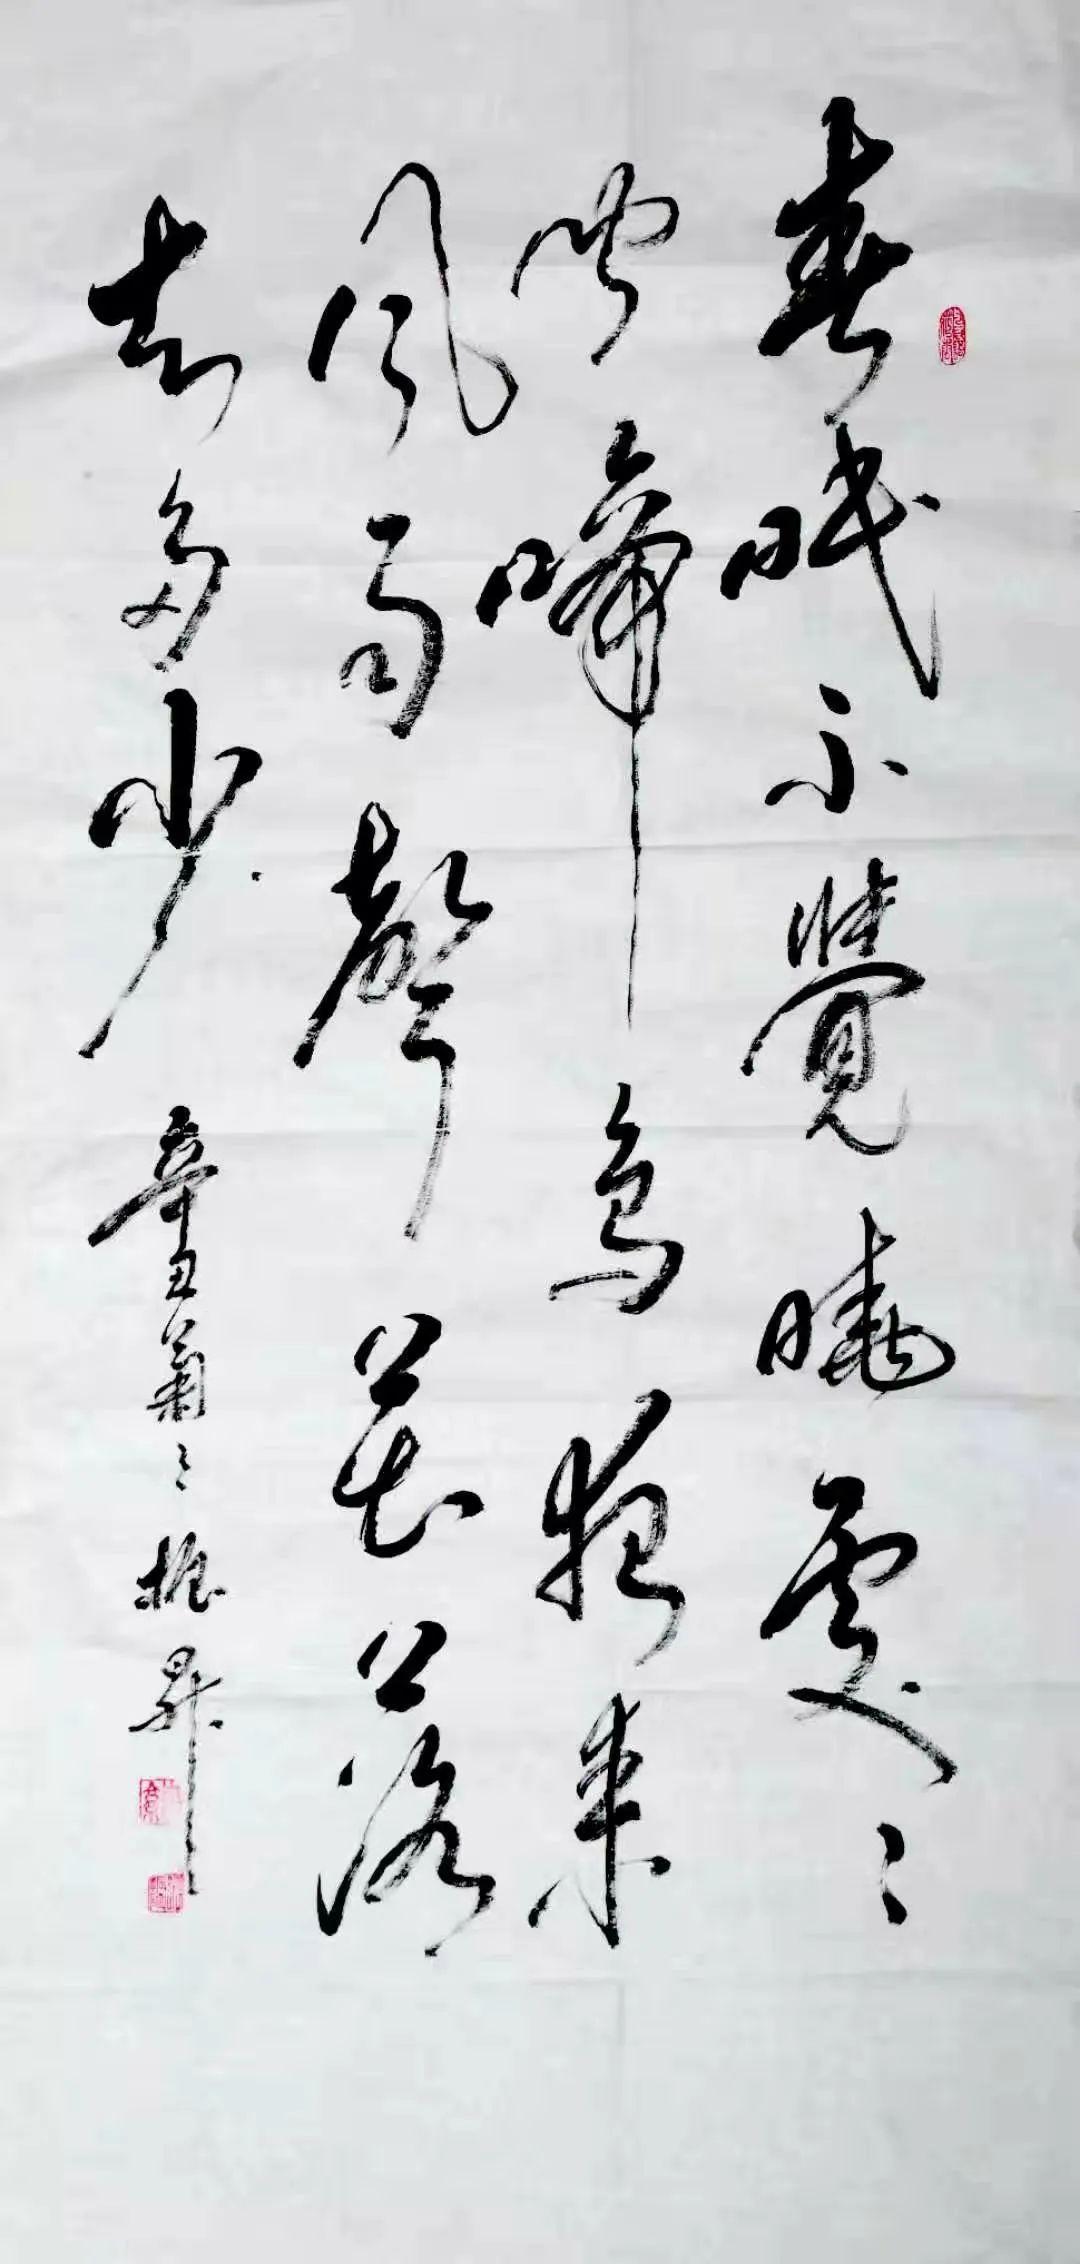 春眠不覺曉處〻
聞啼鳥夜來
風雨聲花落
知多少 辛丑菊〻振昇